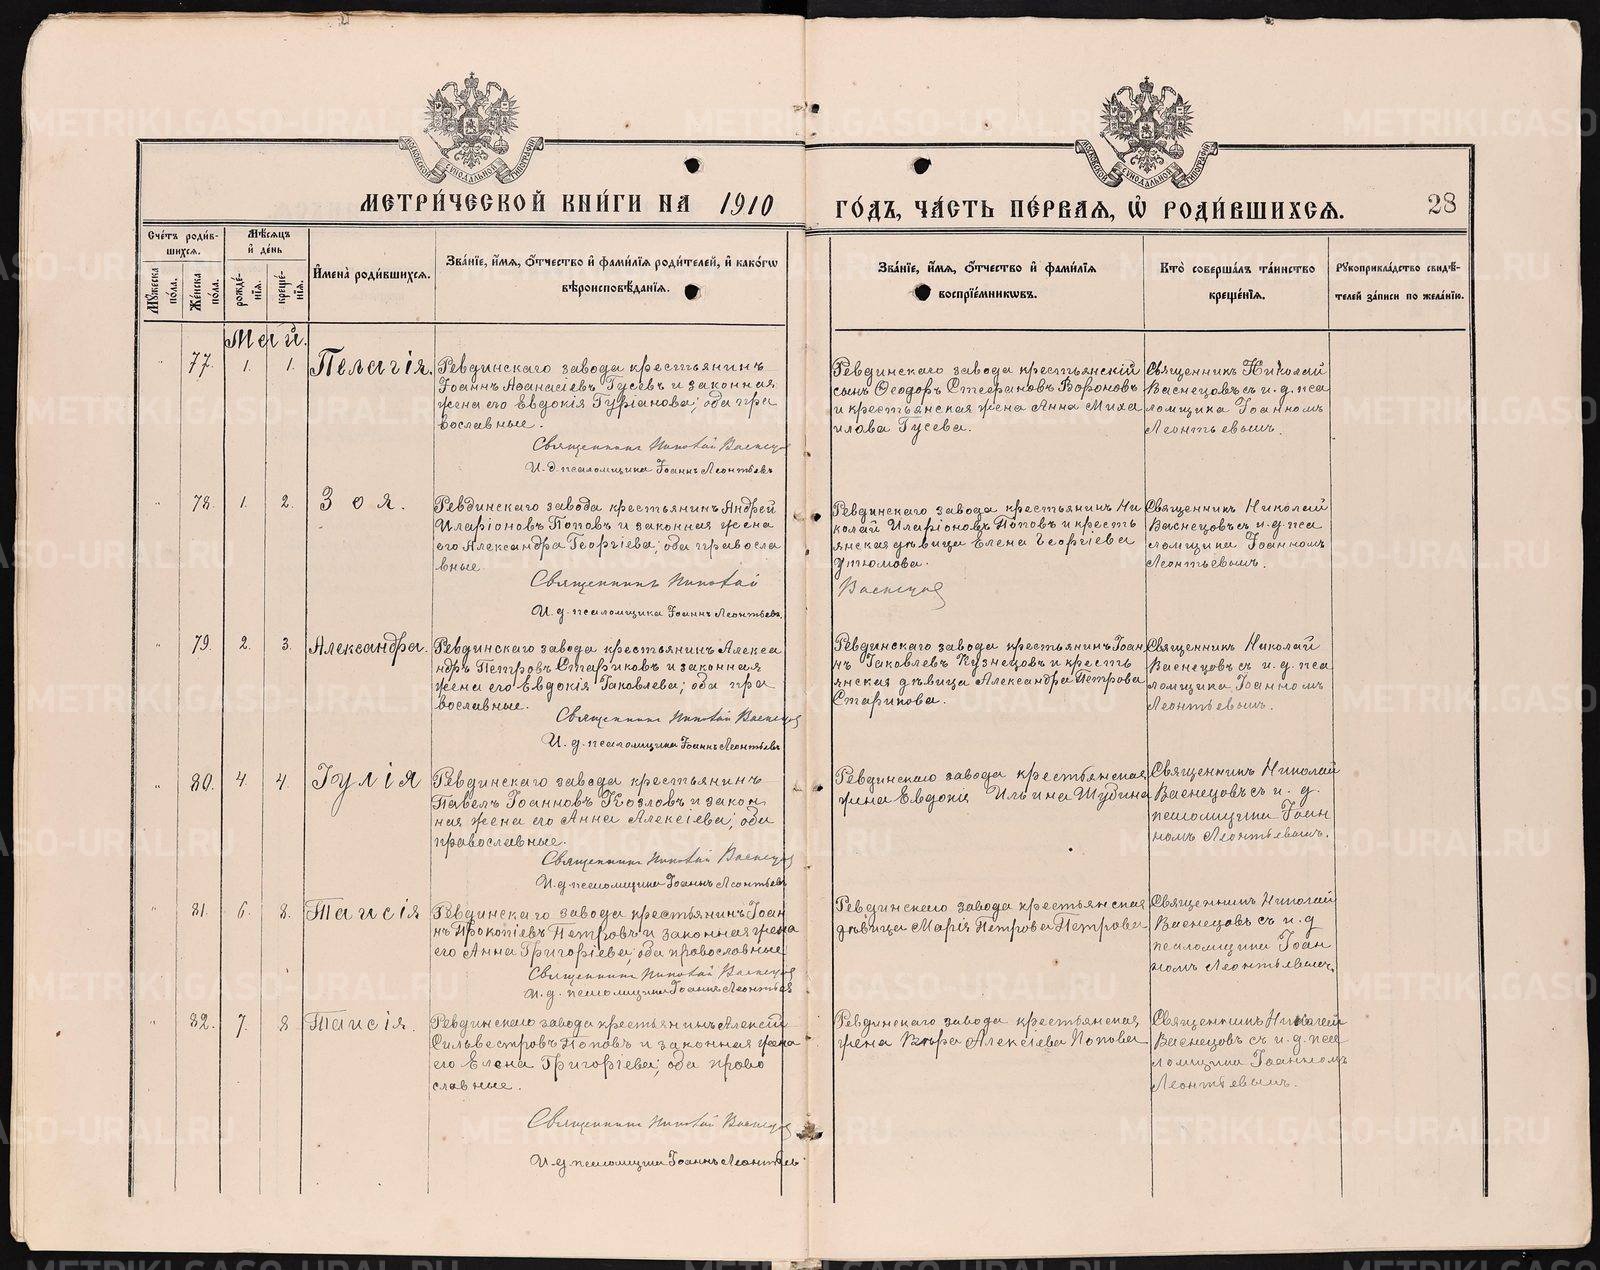 МЕТРИ́ЧЕСКОЙ КНИ́ГИ НА 1910
ГО́ДЪ, ЧА́СТЬ ПЕ́РВАѦ, Ѽ РОДИ́ВШИХСѦ.
28
Сче́тъ роди́в-
шихсѧ.
Мѣ́сѧцъ
и҆ де́нь
Мꙋ́жеска
по́ла.
Же́нска
по́ла.
рожде́-
нїѧ.
креще́-
нїѧ.
И҆мена̀ роди́вшихсѧ.
Зва́нїе, и҆́мѧ, ѻ҆́тчество и҆ фами́лїѧ роди́телей, и҆ како́гѡ
вѣроисповѣ́данїѧ.
Зва́нїе, и҆́мѧ, ѻ҆́тчество и҆ фами́лїѧ
воспрїе́мникѡвъ.
Кто̀ соверша́лъ та́инство
креще́нїѧ.
Рꙋкоприкла́дство свидѣ́-
телей за́писи по жела́нїю.
Май.
" 77. 1. 1. Пелагія.
Ревдинскаго завода крестьянинъ
Іоаннъ Аѳанасіевъ Гусевъ и законная
жена его Евдокія Гуріанова; оба пра
вославные.
Священникъ Николай Васнецов
И. д. псаломщика Іоаннъ Леонтьевъ
Ревдинскаго завода крестьянскій
сынъ Ѳеодоръ Стефановъ Вороновъ
и крестьянская жена Анна Миха
илова Гусева.
Священникъ Николай
Васнецовъ съ и. д. пса
ломщика Іоанномъ
Леонтьевымъ.
" 78. 1. 2. Зоя.
Ревдинскаго завода крестьянинъ Андрей
Иларіоновъ Поповъ и законная жена
его Александра Георгіева; оба правосла
вные.
Священникъ Николай
И. д. псаломщика Іоаннъ Леонтьевъ
Ревдинскаго завода крестьянинъ Ни
колай Иларіоновъ Поповъ и кресть
янская дѣвица Елена Георгіева
Утюмова.
Васнецов
Священникъ Николай
Васнецовъ съ и. д. пса
ломщика Іоанномъ
Леонтьевымъ.
" 79. 2. 3. Александра.
Ревдинскаго завода крестьянинъ Алекса
ндръ Петровъ Стариковъ и законная
жена его Евдокія Іаковлева; оба пра
вославные.
Священникъ Николай Васнецов
И. д. псаломщика Іоаннъ Леонтьевъ
Ревдинскаго завода крестьянинъ Іоан
нъ Іаковлевъ Кузнецовъ и кресть
янская дѣвица Александра Петрова
Старикова.
Священникъ Николай
Васнецовъ съ и. д. пса
ломщика Іоанномъ
Леонтьевымъ.
" 80. 4. 4. Іулія
Ревдинскаго завода крестьянинъ
Павелъ Іоанновъ Козловъ и закон
ная жена его Анна Алексіева; оба
православные.
Священникъ Николай Васнецов
И. д. псаломщика Іоаннъ Леонтьевъ
Ревдинскаго завода крестьянская
жена Евдокія Ильина Шубина
Священникъ Николай
Васнецовъ съ и. д.
псаломщика Іоан
номъ Леонтьевымъ.
" 81. 6. 8. Таисія
Ревдинскаго завода крестьянинъ Іоан
нъ Прокопіевъ Петровъ и законная жена
его Анна Григоріева; оба православные
Священникъ Николай Васнецов
И. д. псаломщика Іоаннъ Леонтьев
Ревдинскаго завода крестьянская
дѣвица Марія Петрова Петрова
Священникъ Николай
Васнецовъ съ и. д
псаломщика Іоан
номъ Леонтьевымъ.
" 82. 7. 8 Таисія.
Ревдинскаго завода крестьянинъ Алексій
Сильвестровъ Поповъ и законная жена
его Елена Григоріева; оба право
славные.
Священникъ Николай Васнецов
И. д. псаломщика Іоаннъ Леонтьевъ
Ревдинскаго завода крестьянская
жена Вѣра Алексіева Попова
Священникъ Николай
Васнецовъ съ и. д. пса
ломщика Іоанномъ
Леонтьевымъ.
METRIKI.GASO-URAL.RU